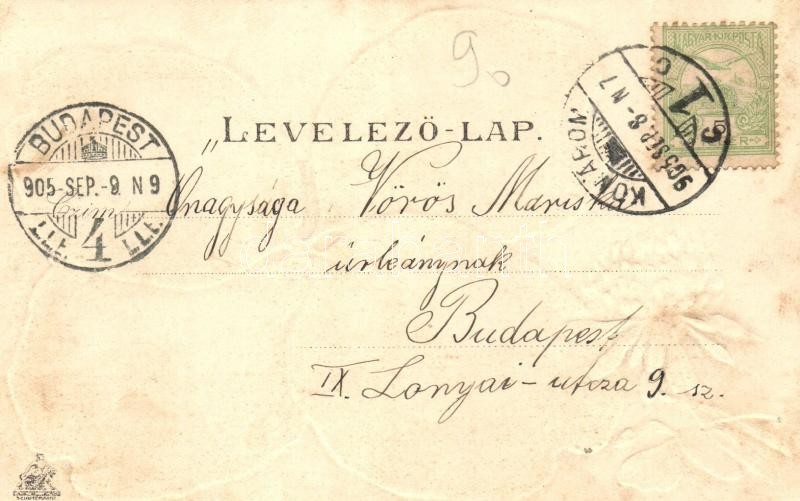 9
MAGYAR KIR. POSTA
„LEVELEZŐ-LAP.
BUDAPEST
905-SEP.-9 N 9
4
KOMÁROM
905 SEP. 8- N 7
1
Czím:
Őnagysága Vörös Mariska
úrleánynak
Budapest
IX. Lonyai-utcza 9. sz.